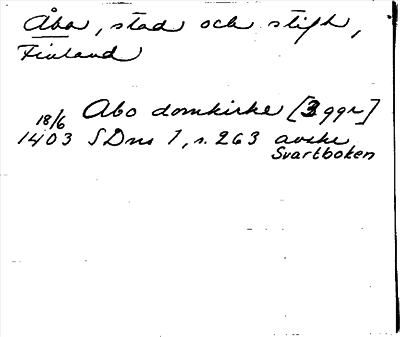 Åbo, stad och stift,
Finland
18/6 Abo domkirke [3 ggr]
1403 SDns 1, s. 263 avskr
Svartboken